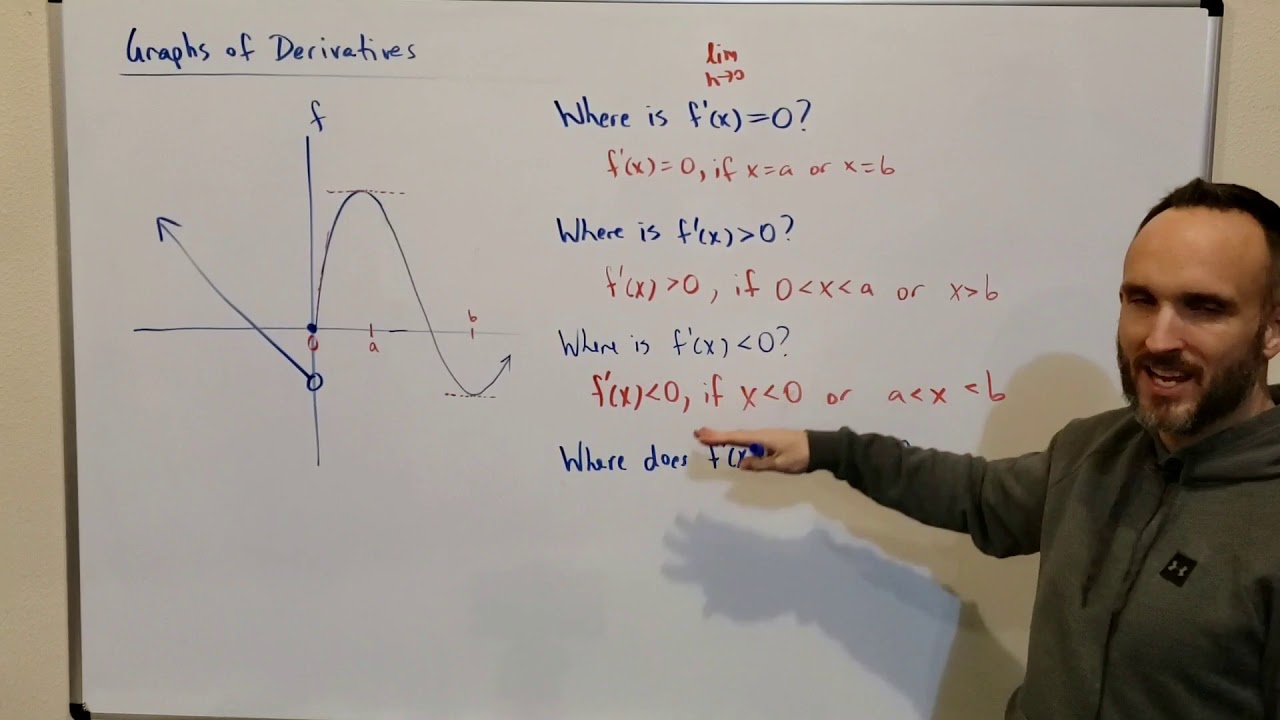 Graphs of Derivatives
f
0
a
b
lim
h→0
Where is f'(x)=0?
f'(x)=0, if x=a or x=b
Where is f'(x)>0?
f'(x)>0, if 0<x<a or x>b
Where is f'(x)<0?
f'(x)<0, if x<0 or a<x<b
Where does f'(x
?